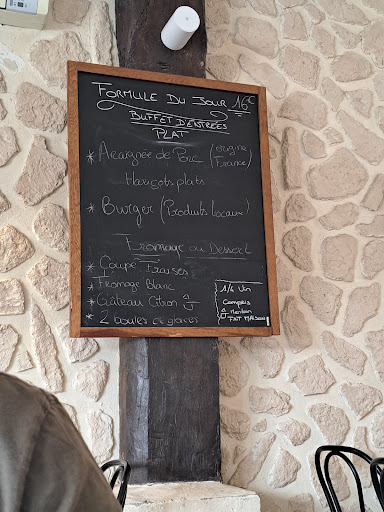 Formule Du Jour 16€
Buffet D'Entrées
Plat
* Araignée de Porc (origine France)
Haricots plats
* Burger (Produits Locaux)
Fromage ou Dessert
* Coupe Fraises
* Fromage Blanc
* Gâteau Citron
* 2 boules de glaces
1/4 Vin
Compris
Mention
FAIT MAISON